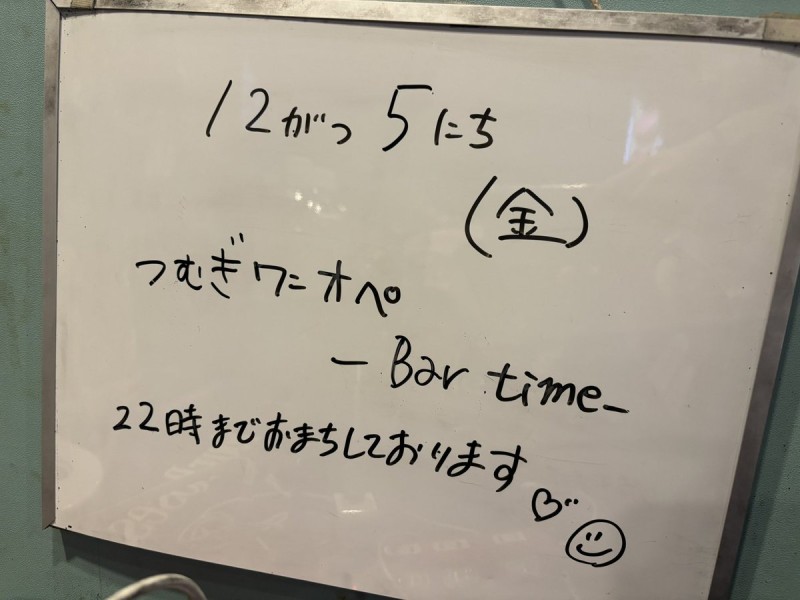 12がつ5にち
(金)
つむぎワンオペ
-Bar time-
22時までおまちしております♡